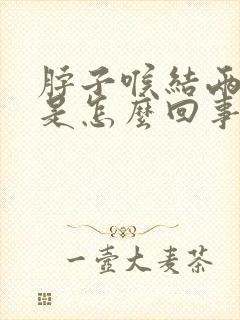 脖子喉結兩
是怎麼回事
一壺大麦茶